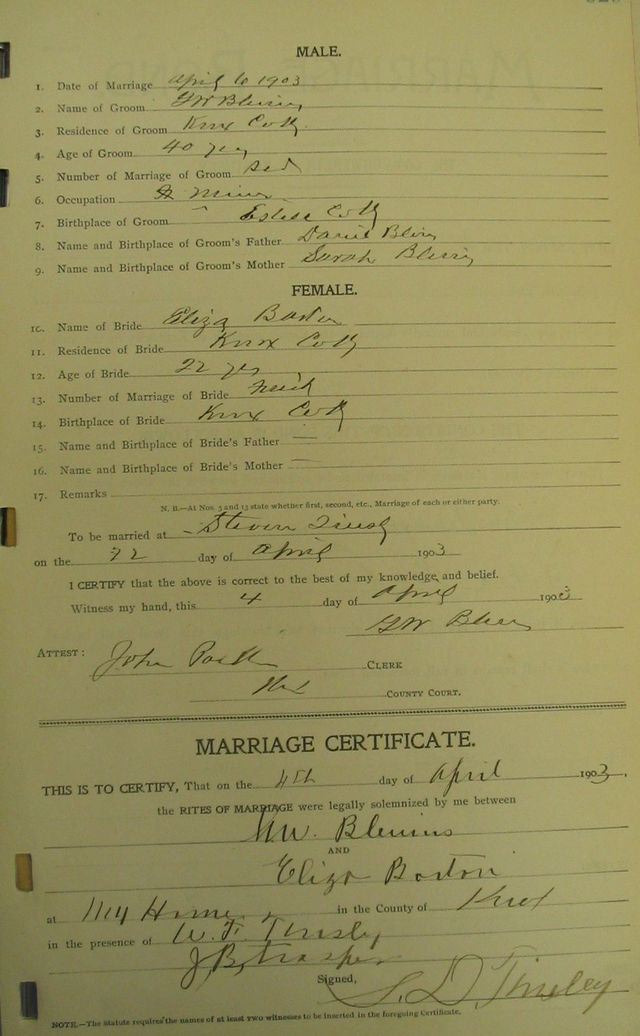 MALE.
1. Date of Marriage April 6 1903
2. Name of Groom GW Blevins
3. Residence of Groom Knox Co Ky
4. Age of Groom 40 yrs
5. Number of Marriage of Groom 2nd
6. Occupation Miner
7. Birthplace of Groom Estill Co Ky
8. Name and Birthplace of Groom's Father Daniel Blevins
9. Name and Birthplace of Groom's Mother Sarah Blevins
FEMALE.
10. Name of Bride Eliza Boston
11. Residence of Bride Knox Co Ky
12. Age of Bride 22 yrs
13. Number of Marriage of Bride
14. Birthplace of Bride Knox Co Ky
15. Name and Birthplace of Bride's Father —
16. Name and Birthplace of Bride's Mother —
17. Remarks
N. B.—At Nos. 5 and 13 state whether first, second, etc., Marriage of each or either party.
To be married at
on the 22 day of April 1903
I CERTIFY that the above is correct to the best of my knowledge and belief.
Witness my hand, this 4 day of April 1903
GW Blevins
ATTEST: John CLERK
COUNTY COURT.
MARRIAGE CERTIFICATE.
THIS IS TO CERTIFY, That on the 4th day of April 1903.
the RITES OF MARRIAGE were legally solemnized by me between
Blevins
AND
Eliza Boston
at My Home in the County of Knox
in the presence of W. F. Tinsley
J B
Signed, S. D Tinsley
NOTE.—The Statute requires the names of at least two witnesses to be inserted in the foregoing Certificate.